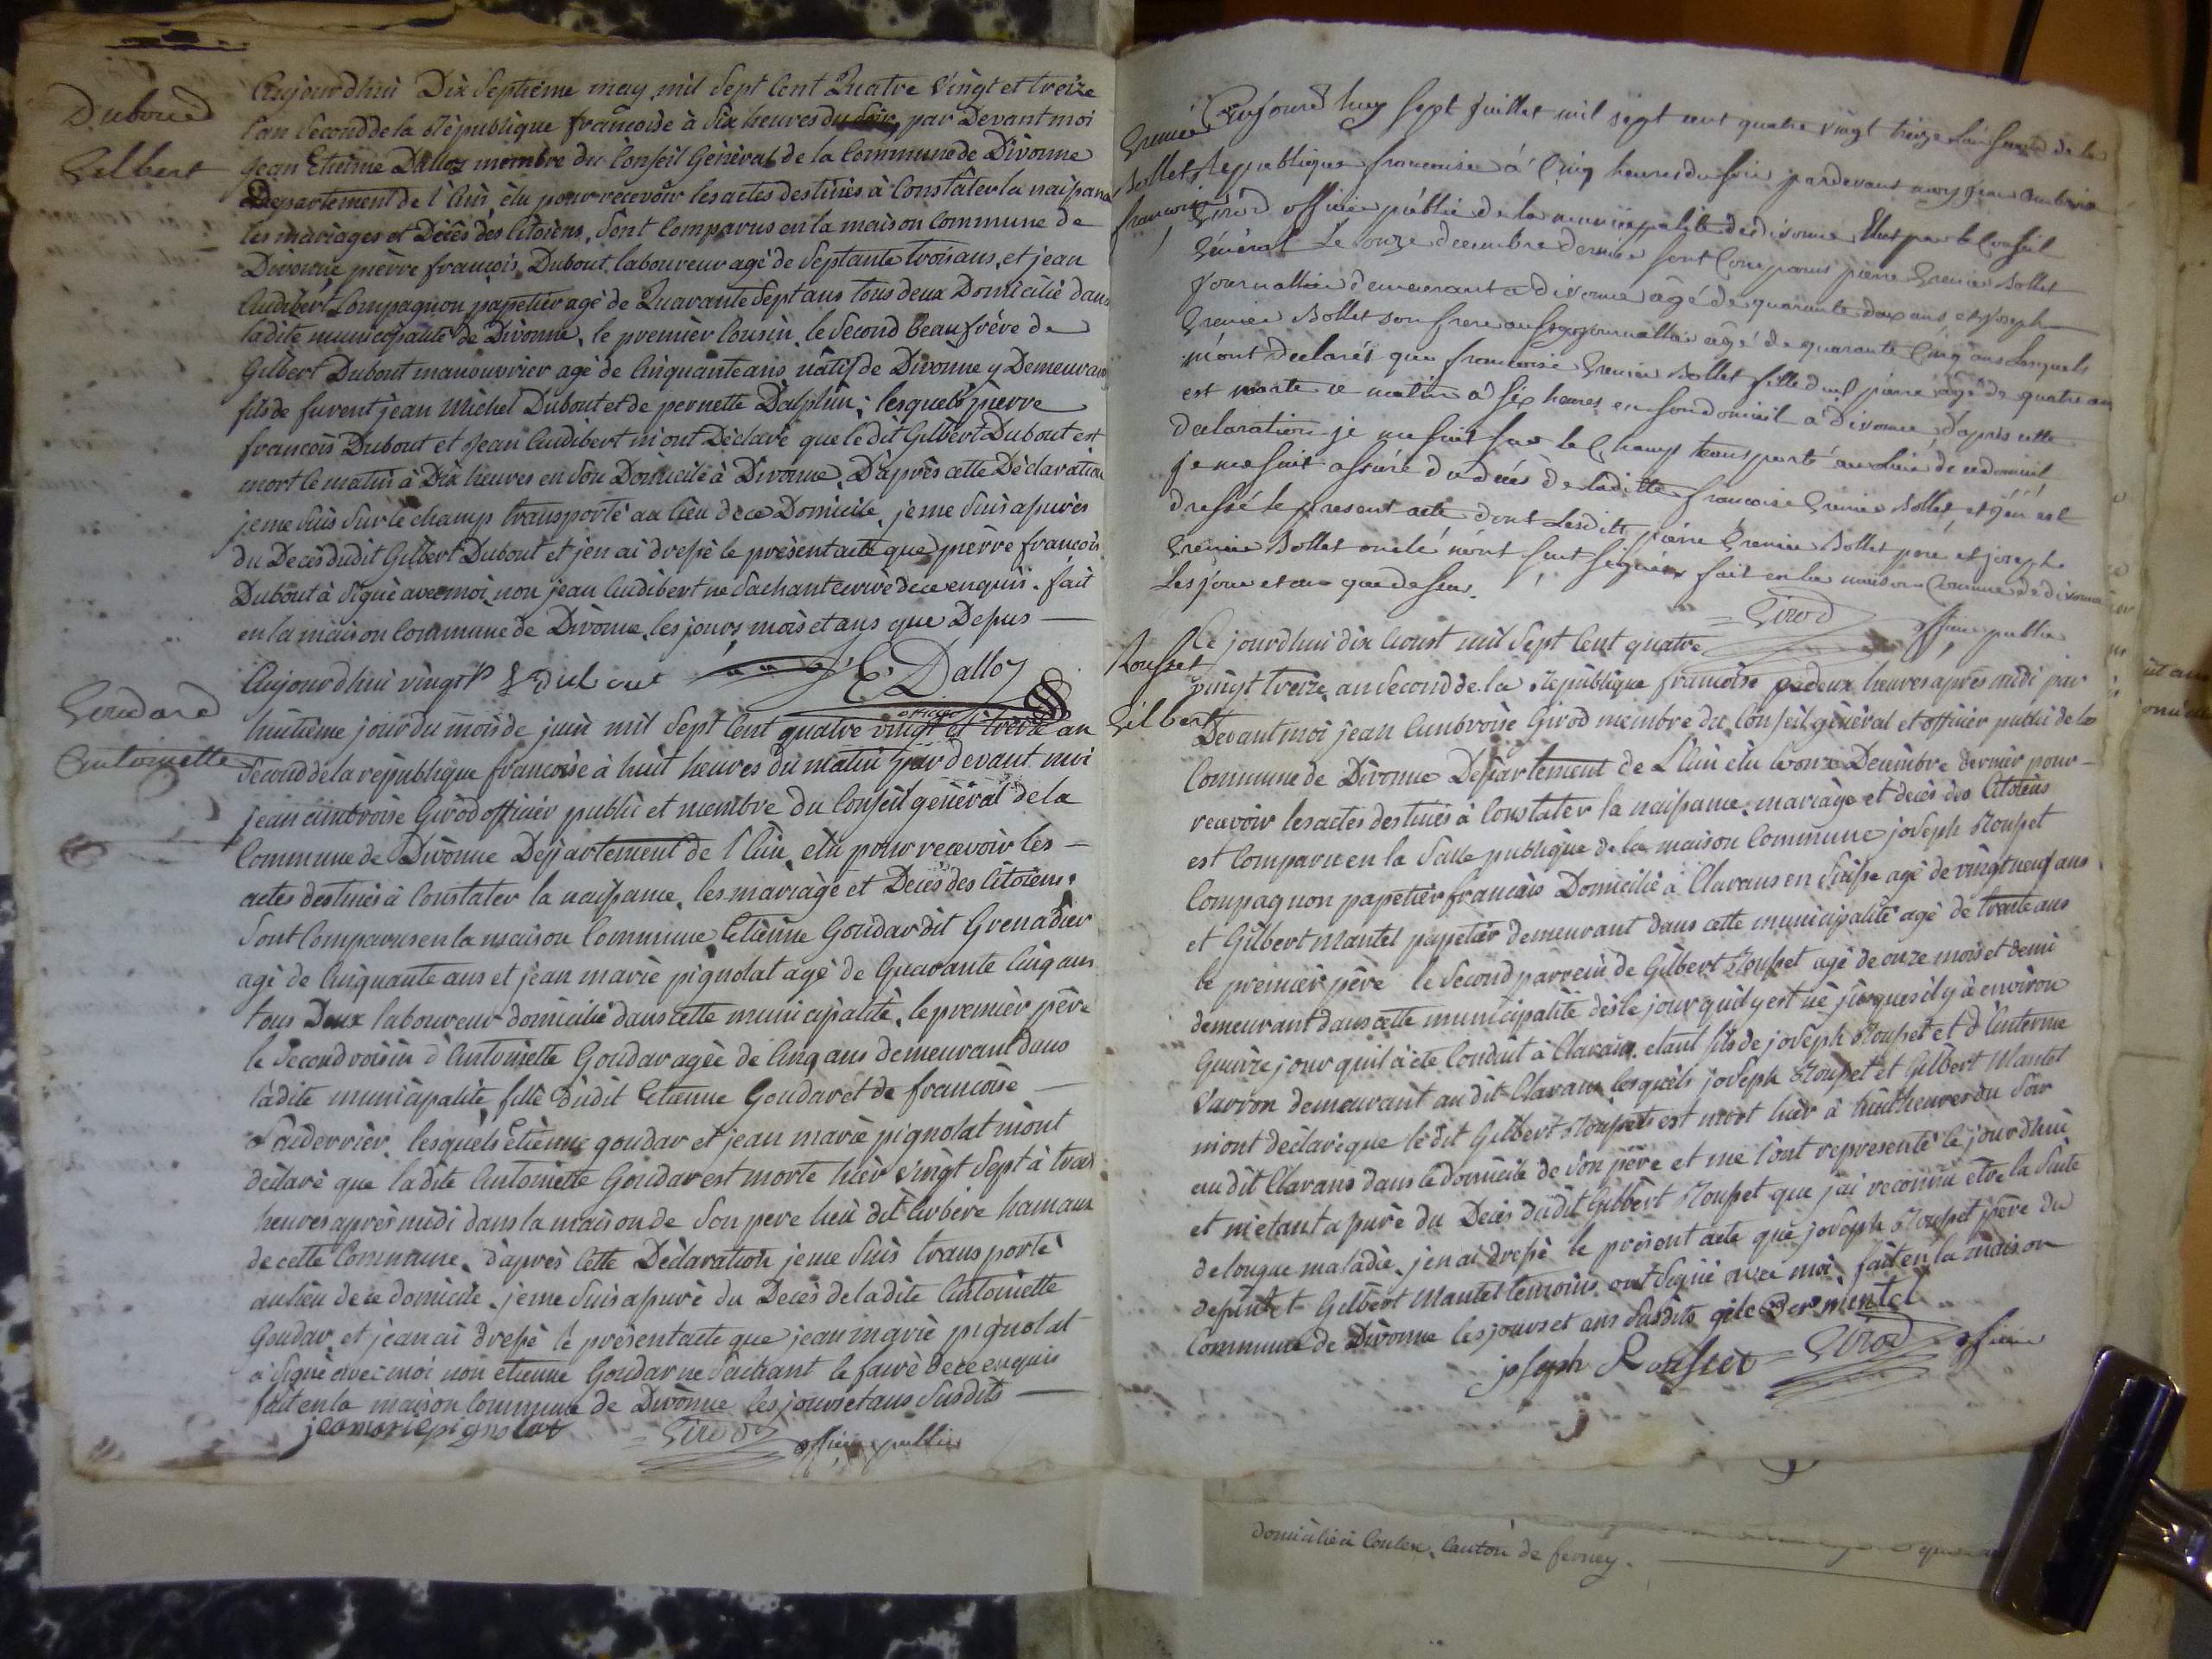 Duboued
Gilbert
Aujourdhui Dix Septième may mil Sept Cent Quatre Vingt et treize
l'an Second de la République francoise à Six heures du Soir, par Devant moi
Jean Etienne Dalloz membre du Conseil Général de la Commune de Divonne
Département de l'Ain, élu pour recevoir les actes destinés à Constater la naissance
les mariages et Décès des Citoiens, Sont Comparus en la maison Commune de
Divonne, pièrre francois Dubout laboureur agé de Septante trois ans, et jean
Audibert Compagnon papetier agé de Quarante Sept ans tous deux Domicilié dans
ladite municipalité de Divonne, le premier Cousin, le Second beaufrère de
Gilbert Dubout manouvrier agé de Cinquante ans natif de Divonne y Demeurant
fils de furent jean Michel Dubout et de pernette Dalphin; lesquels pierre
francois Dubout et Jean Audibert m'ont Déclaré que le dit Gilbert Dubout est
mort le matin à Dix heures en Son Domicile à Divonne, D'après cette Déclaration
je me Suis Sur le champ transporté au lieu de ce Domicile, je me Suis assurés
du Decès dudit Gilbert Dubout et j'en ai dressé le présent acte que pièrre francois
Dubout à Signé avec moi, non jean Audibert ne Sachant écrire de ce enquis. fait
en la maison Commune de Divonne, les jours, mois et ans que Dessus
E. Dalloz
officier
Goudard
Antoinette
Aujourdhui vingt
huitième jour du mois de juin mil Sept Cent quatre vingt et treize an
Second de la république francoise à huit heures du matin par devant moi
jean ambroise Girod officier public et membre du Conseil général de la
Commune de Divonne Département de l'Ain, élu pour recevoir les
actes destinés à Constater la naissance, les mariage et Decès des Citoiens.
Sont Comparus en la maison Commune Etienne Goudar dit Grenadier
agé de Cinquante ans et jean marie pignolat agé de Quarante Cinq ans
tous Deux laboureur domicilié dans cette municipalité, le premier père
le Second voisin d'Antoinette Goudar agée de Cinq ans demeurant dans
ladite municipalité fille dudit Etienne Goudar et de francoise
lesquels Etienne goudar et jean marie pignolat m'ont
déclaré que ladite Antoinette Goudar est morte hier Vingt Sept à trois
heures après midi dans la maison de Son pere lieu dit Arbère hamaux
de cette Commune. d'après Cette Déclaration je me Suis transporté
au lieu de ce domicile. je me Suis assuré du Decès de ladite Antoinette
Goudar et jean ai dressé le présent acte que jean marie pignolat
a Signé avec moi non etienne Goudar ne Sachant le faire de ce enquis
fait en la maison Commune de Divonne les jours et ans Susdits
jeamariepignolat
Girod officier public
Grenier
Bollet
francoise
Aujourd huy sept juillet mil sept cent quatre vingt treize l'an second de la
Republique francoise à Cinq heures du soir pardevant moy jean ambroise
Girod officier public de la municipalité de divonne Elut par le Conseil
Général Le onze decembre dernier sont Comparus pierre Grenier Bollet
journallier demeurant a divonne agé de quarante deux ans et Joseph
Grenier Bollet son frere aussy journallier agé de quarante Cinq ans Lesquels
m'ont declarés que francoise Grenier Bollet fille dud. pierre agé de quatre ans
est morte ce matin a six heures en son domicil a divonne, d'après cette
declaration je me suit sur le Champ transporté au Lieu de ce domicil
je me suit assuré du décès de laditte francoise Grenier Bollet, et j'en est
dressé le present acte dont Lesdits pierre Grenier Bollet pere et joseph
Grenier Bollet oncle n'ont sut signér fait en la maison Commune de divonne
Les jour et an que dessus.
Girod officier public
Rousset
Gilbert
Ce jourdhui dix Aoust mil Sept Cent quatre
vingt treize, an Second de la République francoise à deux heures après midi par
Devant moi jean Ambroise Girod membre du Conseil général et officier public de la
Commune de Divonne Département de L'Ain élu le onze Décembre dernier pour
recevoir les actes destinés à Constater la naissance, mariage et decès des Citoiens
est Comparu en la Salle publique de la maison Commune joseph Rousset
Compagnon papetier francais Domicilié à Clarans en Suisse agé de vingt neuf ans
et Gilbert Mantel papetier demeurant dans cette municipalité agé de trente ans
le premier père le Second parrein de Gilbert Rousset agé de onze mois et demi
demeurant dans cette municipalité dès le jour quil y est né jusques il y à environ
Quinze jour quil à été Conduit à Clarans. étant fils de joseph Rousset et d'Anterme
Varron demeurant audit Clarans lesquels joseph Rousset et Gilbert Mantel
m'ont déclaré que le dit Gilbert Rousset est mort hier à huit heures du Soir
audit Clarans dans le domicile de Son père et me l'ont représenté le jourdhui
et m'étant assuré du Decès dudit Gilbert Rousset que j'ai reconnu etre la Suite
de longue maladie, j'en ai dressé le présent acte que joseph Rousset père du
defunt et Gilbert Mantel temoins ont Signé avec moi, fait en la maison
Commune de Divonne les jours et ans Susdits gilc Ber mentel
joseph Rousset Girod officier
Domicilié à Coulex, Canton de ferney.